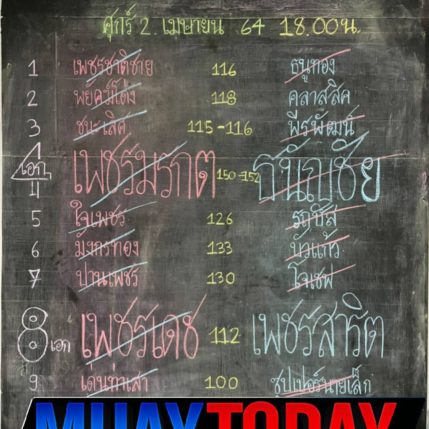 ศุกร์ 2 เมษายน 64 18.00น.
1 เพชรชาติชาย 116 ธนูทอง
2 พยัคฆ์โต่ง 118 คลาสสิค
3 ชนะเลิศ 115-116 พีรพัฒน์
4 เอก เพชรมรกต 150-152 ธนัญชัย
5 ใจเพชร 126
6 มังกรทอง 133 บัวแก้ว
7 ปานเพชร 130 โจเซฟ
8 เอก เพชรเดช 112 เพชรสาริต
9 เด่นท่าเสา 100 ซุปเปอร์นายเล็ก
MUAYTODAY